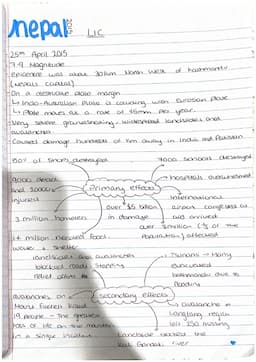 nepal 2015 LIC
25th April 2015
7.9 Magnitude
Epicentre was about 80km North West of Kathmandu
(Nepals capital)
On a destructive plate margin
↳ Indo-Australian Plate is colliding with Eurasian Plate
↳ Plate moves at a rate of 45mm per year.
Very severe groundshaking, widespread landslides and
avalanches
Caused damage hundreds of km away in India and Pakistan
50% of shops destroyed
7000 schools destroyed
9000 dead
and 20000
injured
Primary effects
hospitals overwhelmed
International
airport congested as
aid arrived
over $5 billion
in damage
3 million homeless
over 8 million (1/3 of the
population) affected
1.4 million needed food,
water & shelter
landslides and avalanches
blocked roads
relief efforts
Many
evacuated
flooding
Secondary effects
avalanches on
Mount Everest killed
19 people - the greatest
loss of life on the mountain
in a single incident
avalanche in
Langtang region
left 250 missing
landslide blocked the
Kali Gandaki river